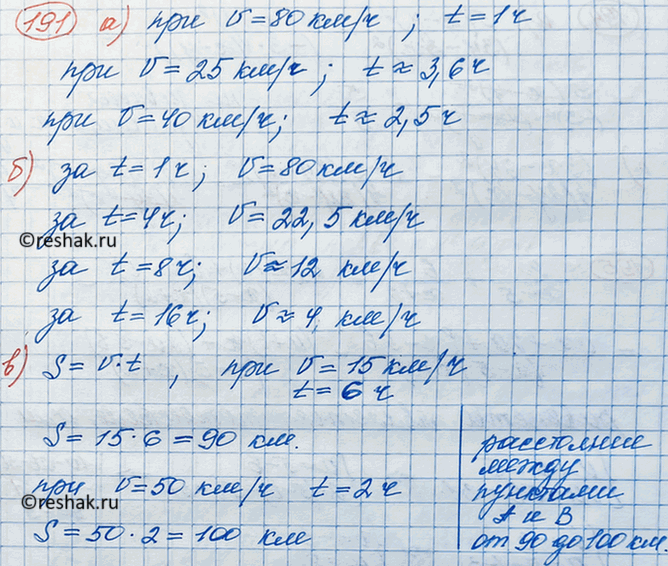 191 а) при v = 80 км/ч ; t = 1 ч
при v = 25 км/ч ; t ≈ 3,6 ч
при v = 40 км/ч; t ≈ 2,5 ч
б) за t = 1 ч; v = 80 км/ч
за t = 4 ч; v = 22,5 км/ч
©reshak.ru
за t = 8 ч; v ≈ 12 км/ч
за t = 16 ч; v ≈ 4 км/ч
в) S = v·t , при v = 15 км/ч
t = 6 ч
S = 15·6 = 90 км.
при v = 50 км/ч t = 2 ч
©reshak.ru
S = 50·2 = 100 км
расстояние
между
пунктами
А и В
от 90 до 100 км.